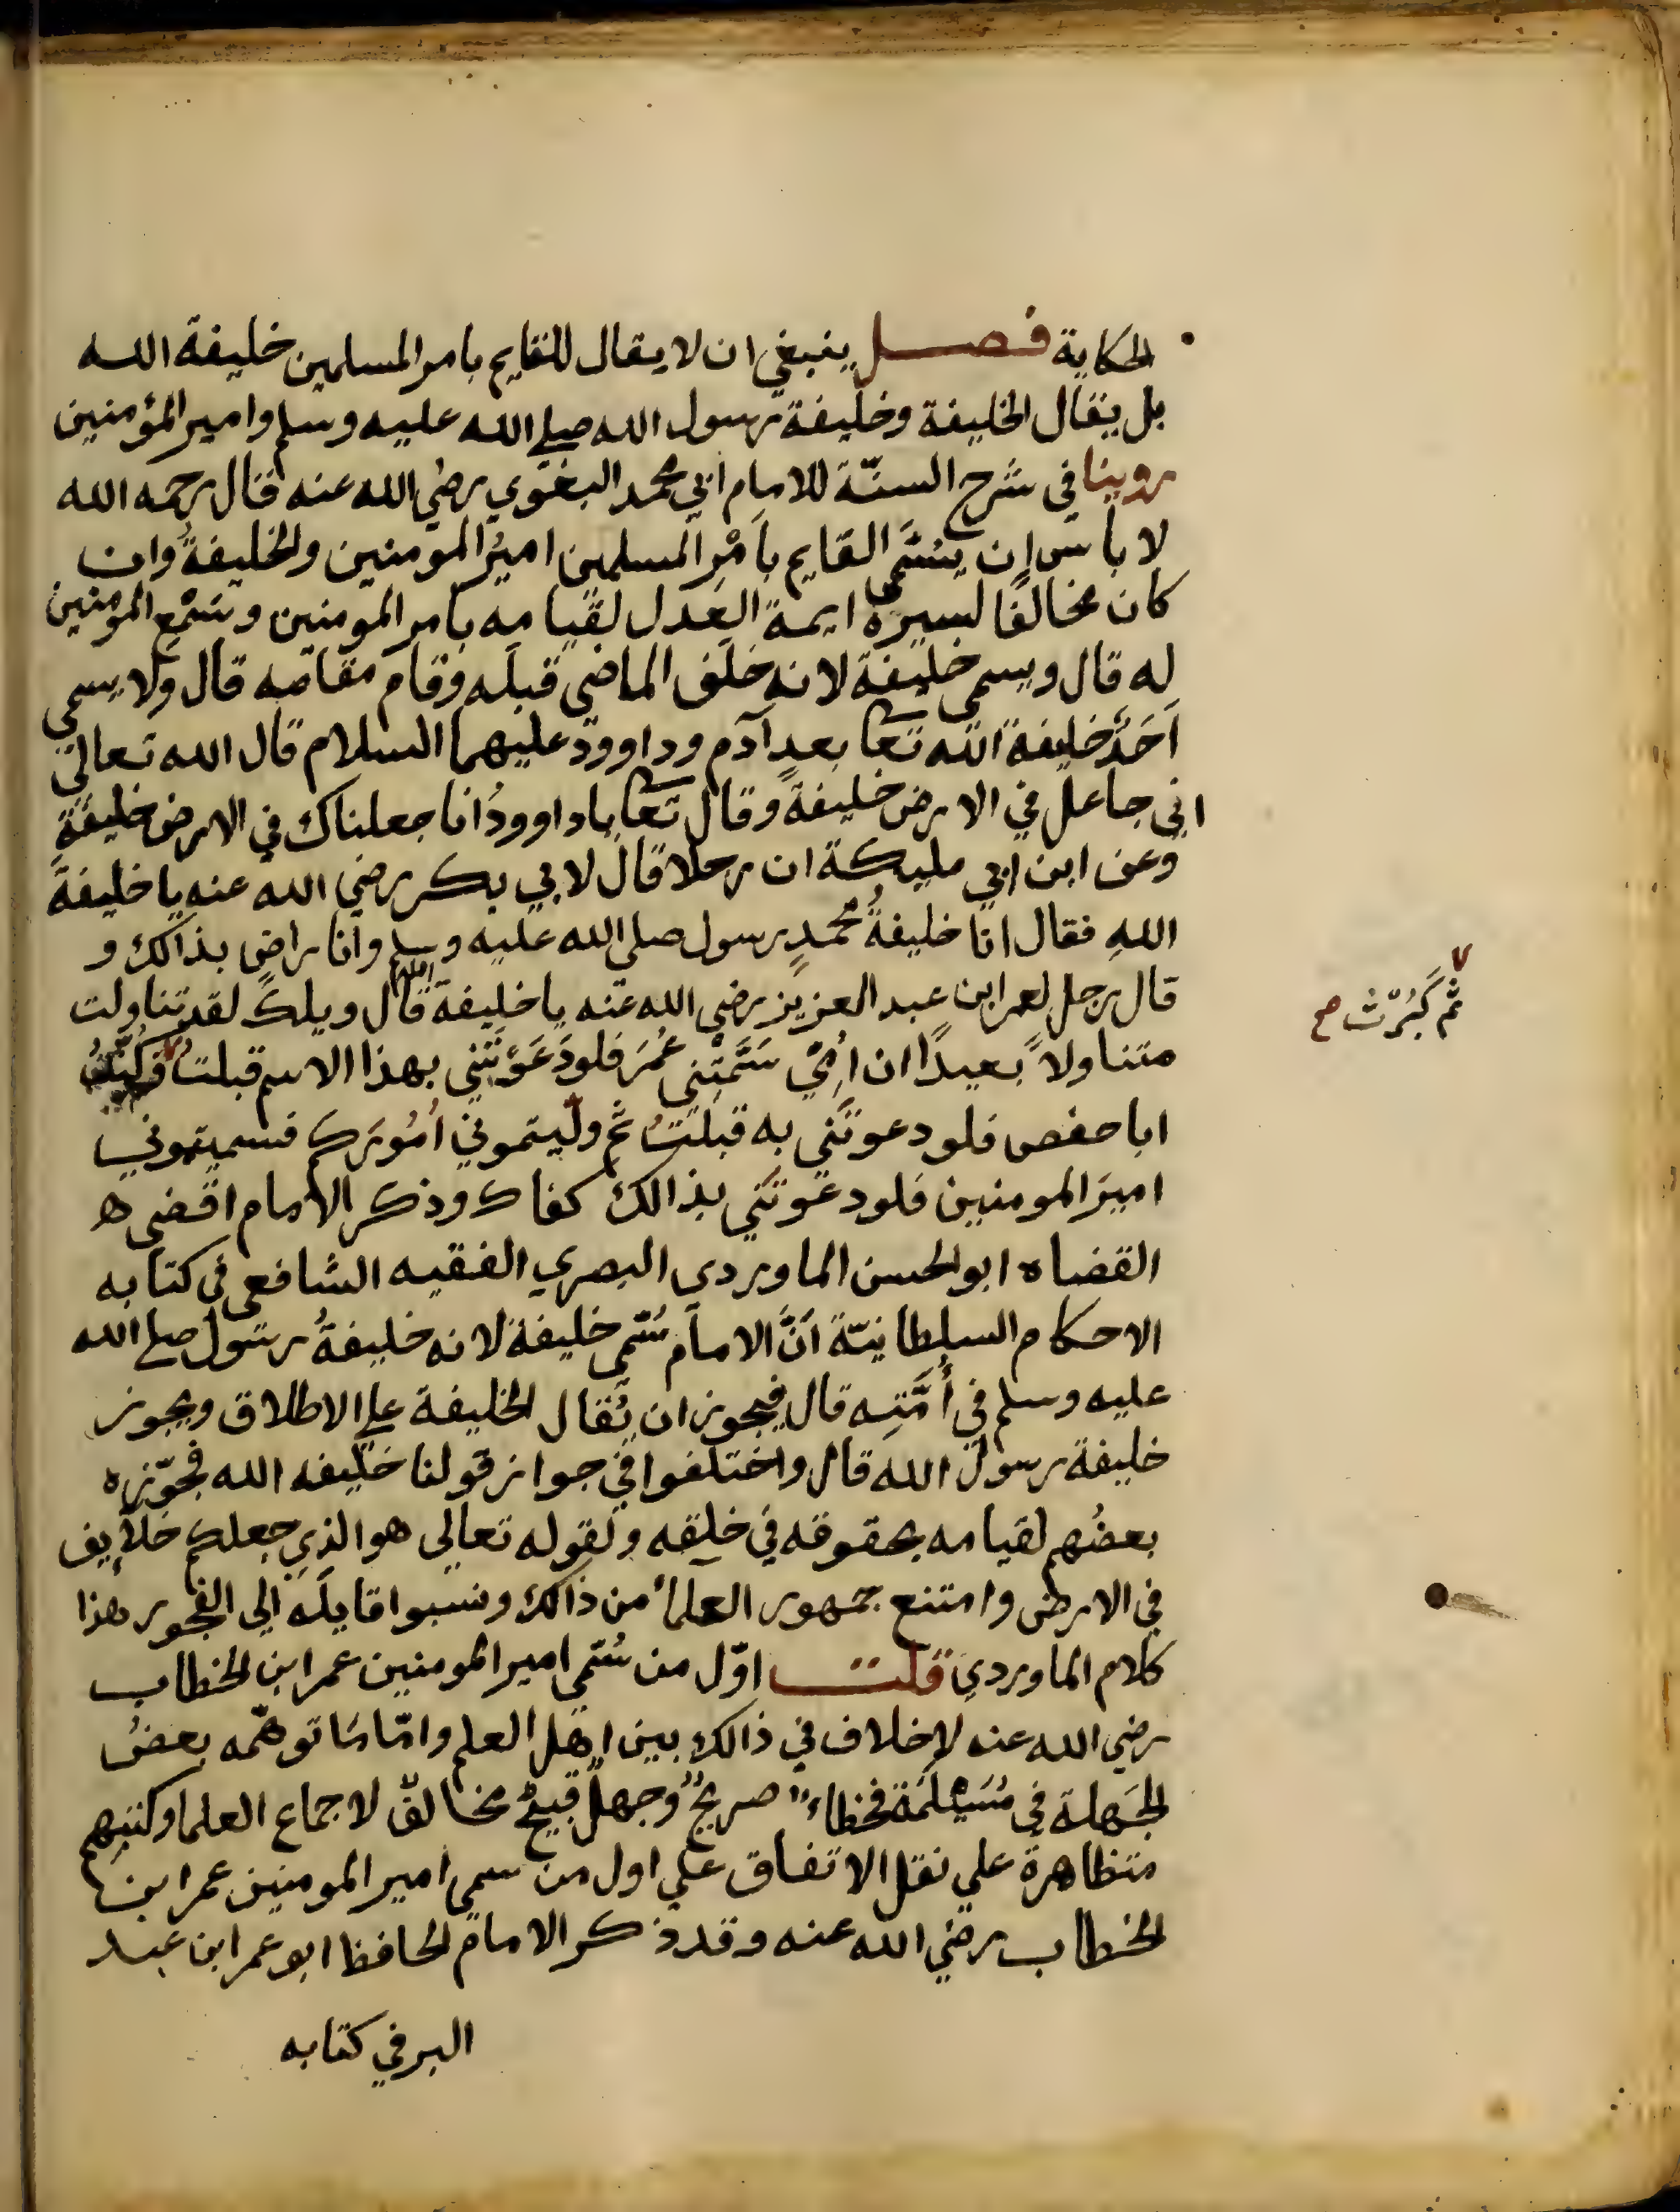 الحكاية فصل ينبغي ان لا يقال للقايم بامر المسلمين خليفة الله
بل يقال الخليفة وخليفة رسول الله صلى الله عليه وسلم وامير المؤمنين
روينا في شرح السنّة للامام ابي محمد البغوي رضي الله عنه قال رحمه الله
لا باس ان يسَمَّى القايم بامْرِ المسلمين اميرُ المومنين والخليفةُ وان
كان مخالفًا لسيرة ايمة العدل لقيامه بامر المومنين وسَمْعِ المومنين
له قال ويسمى خليفة لانه خلَف الماضي قبلَه وقام مقامه قال ولا يسمي
اَحَدٌ خليفة الله تعا بعد آدم وداوود عليهما السلام قال الله تعالي
اني جاعل في الارض خليفةً وقال تعا ياداوودُ انا جعلناك في الارض خليفةً
وعن ابن ابي مليكة ان رجلا قال لابي بكر رضي الله عنه يا خليفةَ
اللهِ فقال انا خليفةُ محمدٍ رسول صلى الله عليه وسلم وانا راضٍ بذالك و
قال رجل لعمر ابن عبد العزيز رضي الله عنه يا خليفة الله قال ويلك لقد تناولت
ثم كَبُرْت صح
متناولاً بعيدًا ان اُمّي سَمَّتْنِي عُمَرَ فلو دَعَوْتَني بهذا الاسم قبلتُ فكُنّيتُ
ابا حفص فلو دعوتَني به قبلتُ ثم ولّيتموني اُمُورَكم فسميتموني
اميرَ المومنين فلو دعوتَني بذالك كفاك وذكر الامام اقضى ه
القضاه ابو الحسن الماوردي البصري الفقيه الشافعي في كتابه
الاحكام السلطانيّة اَنَّ الامام سُمّي خليفة لانه خليفةُ رسول صلى الله
عليه وسلم في اُمَّتِه قال فيجوز ان يُقال الخليفة على الاطلاق ويجوز
خليفة رسول الله قال واختلفوا في جواز قولنا خليفه الله فجوّزه
بعضُهم لقيامه بحقوقه في خلقه ولقوله تعالى هو الذي جعلكم خلايف
في الارض وامتنع جمهور العلماء من ذالك ونسبوا قايلَه الي الفجور هذا
كلام الماوردي قلت اوّل من سُمّي امير المومنين عمر ابن الخطاب
رضي الله عنه لا خلاف في ذالك بين اهل العلم وامّا مَا توهّمه بعضُ
الجَهلة في مُسَيْلَمَة فخطاءٌ صريحٌ وجهلٌ قبيحٌ مخالفٌ لاجماع العلما وكتبُهم
متظاهرة علي نقل الاتفاق علي اول من سمي امير المومنين عمر ابن
الخطاب رضي الله عنه وقد ذكر الامام الحافظ ابو عمر ابن عبد
البر في كتابه